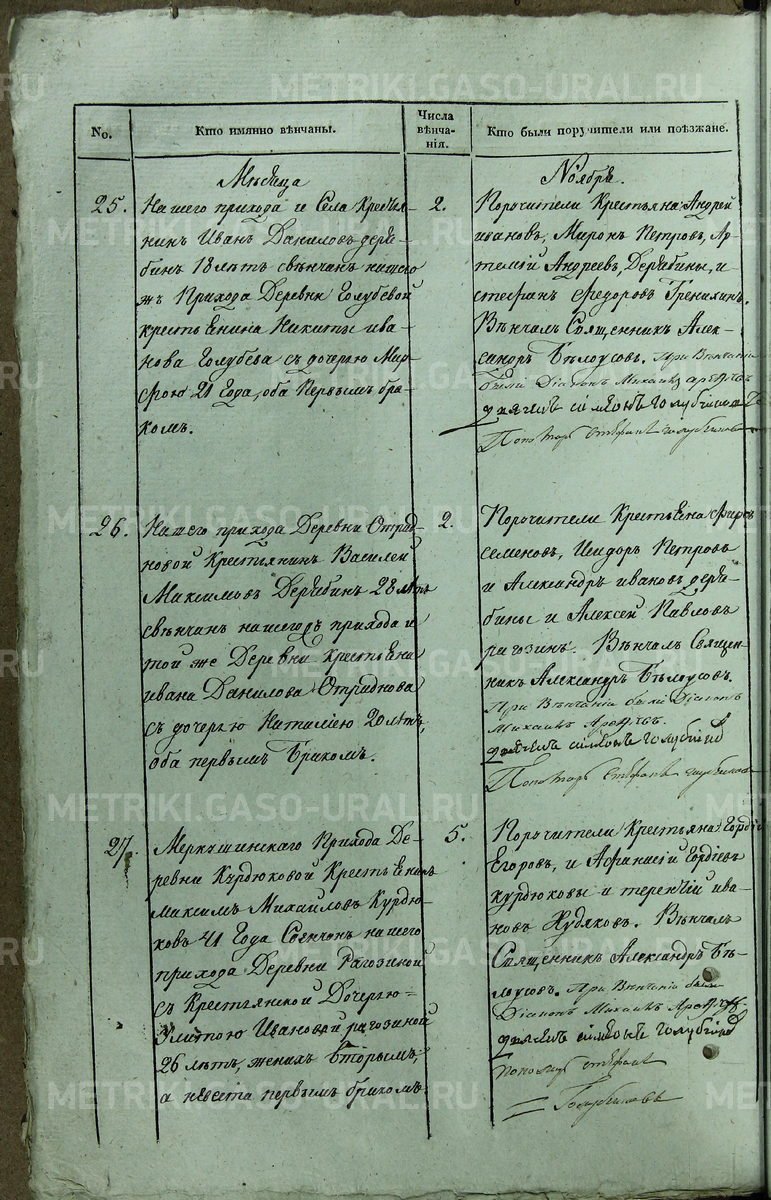 METRIKI.GASO-URAL.RU
No.
Кто имянно вѣнчаны.
Числа вѣнча-нія.
Кто были поручители или поѣзжане.
Мѣсяца
Ноябрь.
25.
Нашего прихода и Села Кресть-
янинъ Иванъ Даниловъ деря-
бинъ 18 лѣтъ свѣнчан нашего
жъ Прихода Деревни Голубевой
крестьенина Никиты ива-
нова Голубева съ дочерью Мар-
фою 21 года, оба Первымъ бра-
комъ.
2.
Поручители Крестьяна Андрей
ивановъ, Миронъ Петровъ, Ар-
темій Андреевъ, Дерябины, и
стефанъ Федоровъ Гренихинъ.
Вѣнчалъ Священникъ Алек-
сандръ Бѣлоусовъ. При Вѣнчаніи
были Діаконъ Михаилъ
дьячекъ сімеонъ голубчиков
Пономарь Стефанъ голубчиковъ
26.
Нашего прихода Деревни Отрад-
новой Крестьянинъ Василей
Максимовъ Дерябинъ 28 лѣтъ
свѣнчанъ нашегожъ прихода и
той же Деревни Крестьенина
ивана Данилова Отраднова
съ дочерью Наталіею 20 лѣтъ,
оба первымъ бракомъ.
2.
Поручители Крестьена Фирсъ
семеновъ, Исидоръ Петровъ
и Александръ ивановъ деря-
бины и Алексей Павловъ
рагозинъ. Вѣнчалъ Священ-
никъ Александръ Бѣлоусовъ.
При Вѣнчаніи были Діаконъ
Михаилъ
дьячекъ сімеонъ голубчиков
Пономарь Стефанъ голубчиковъ
27.
Меркушинскаго Прихода Де-
ревни Курдюковой Крестьенинъ
Максимъ Михайловъ Курдю-
ковъ 41 года Свенчонъ нашего
прихода Деревни Рагозиной
съ Крестьянской Дочерью
Улитою Ивановой рагозиной
26 лѣтъ, женихъ вторымъ,
а невѣста первымъ бракомъ.
5.
Поручители Крестьяна Гордій
Егоровъ, и Афанасій Гордіевъ
курдюковы и терентій ива-
новъ Худяковъ. Вѣнчалъ
Священникъ Александръ Бѣ-
лоусовъ. При Вѣнчаніи были
Діаконъ Михаилъ
дьячекъ сімеонъ голубчиков
пономарь стефанъ
Голубчиковъ